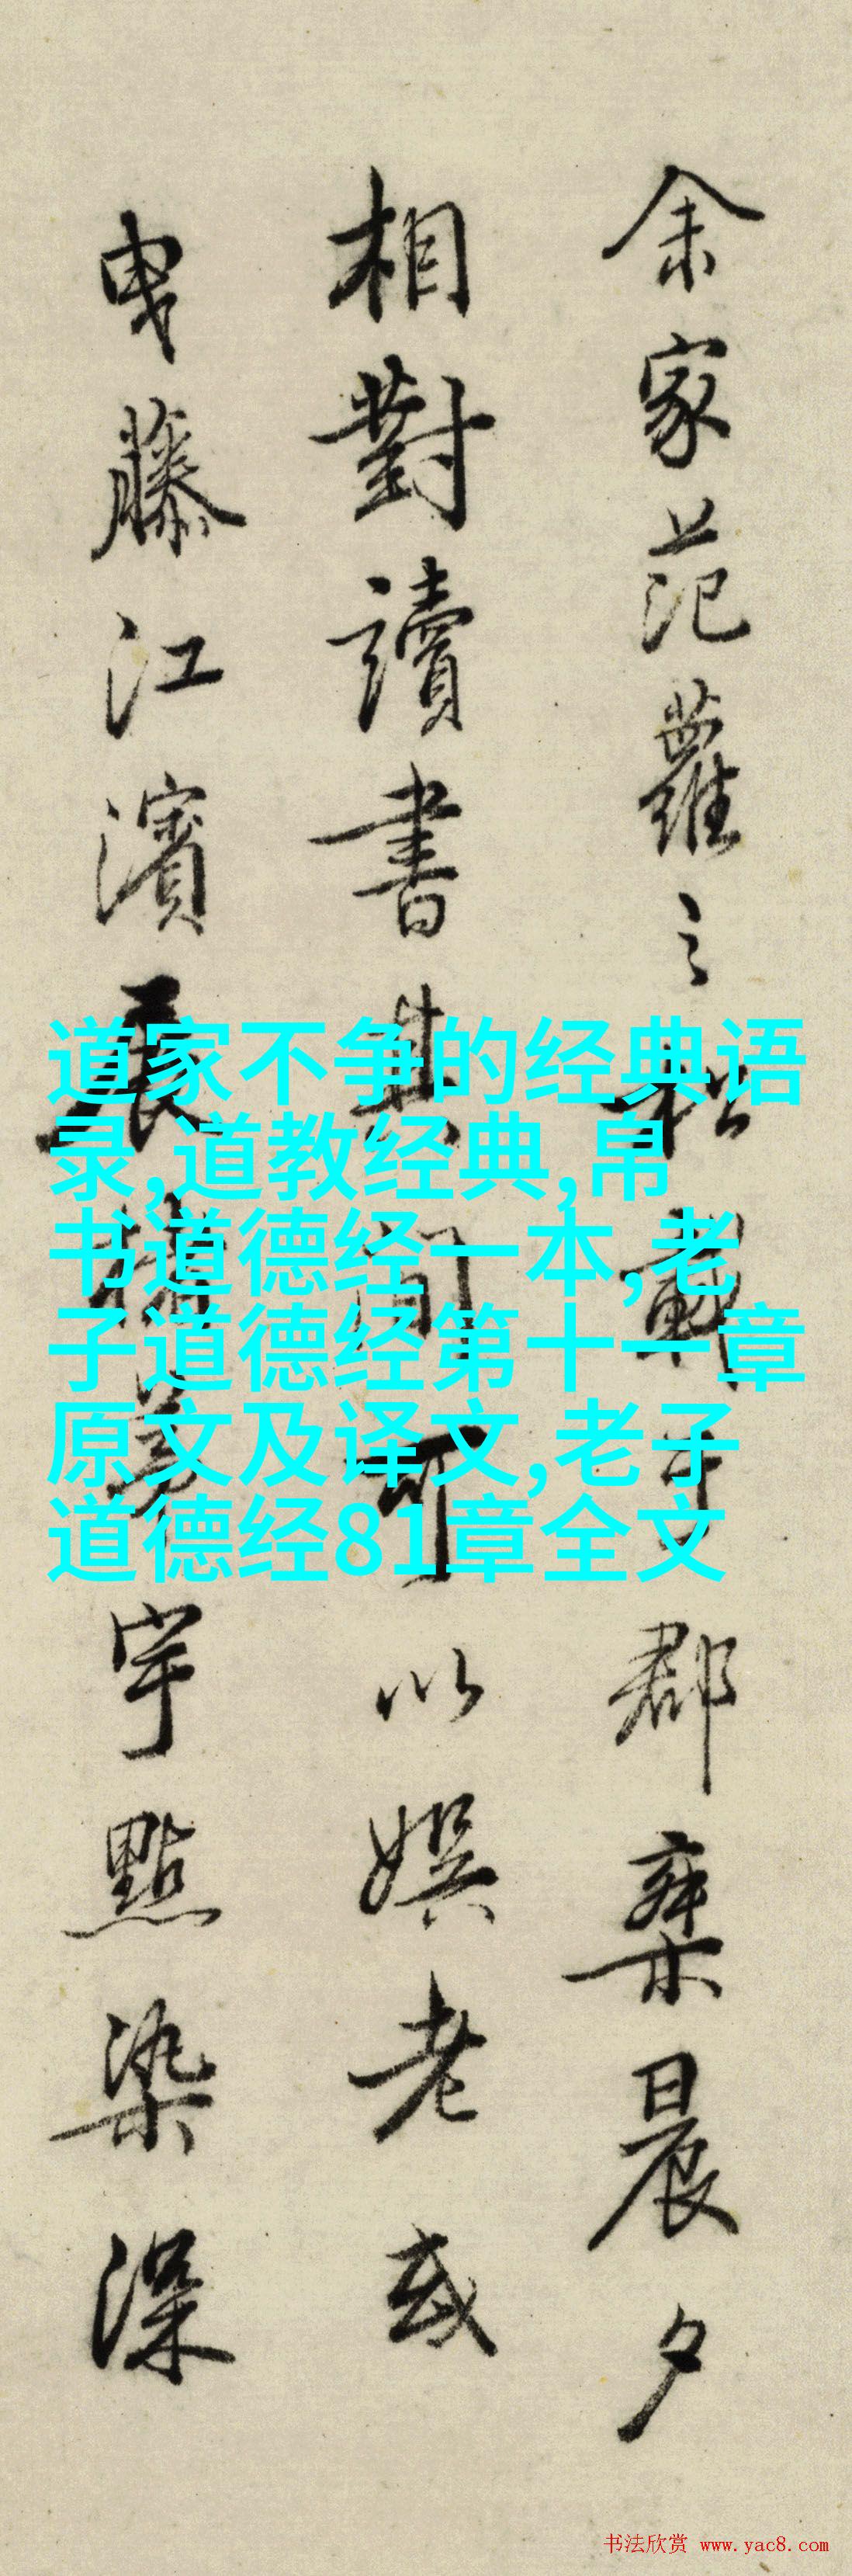 余家范蘿之松載于郡乘晨夕
相對讀書其間可以娛老或
曳藤江濱展宇點染深
道家不争的经典语
录,道教经典,帛
书道德经一本,老
子道德经第十一章
原文及译文,老子
道德经81章全文
书法欣赏 www.yac8.com